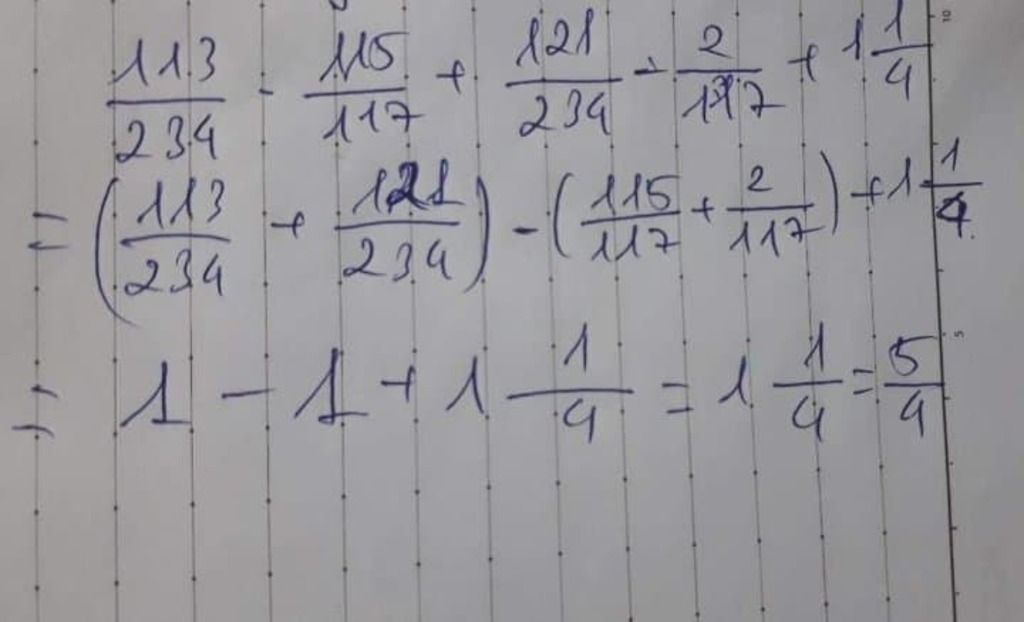 113/234 - 115/117 + 121/234 - 2/117 + 1 1/4
= (113/234 + 121/234) - (115/117 + 2/117) + 1 1/4
= 1 - 1 + 1 1/4 = 1 1/4 = 5/4
10
5